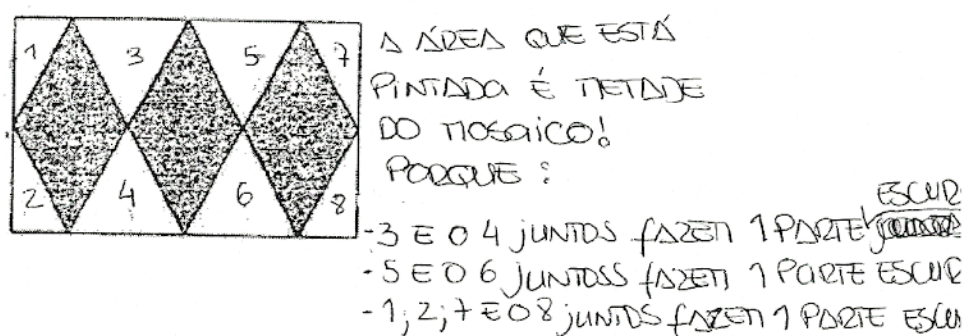 1 3 5 7
2 4 6 8
A ÁREA QUE ESTÁ
PINTADA É METADE
DO MOSAICO!
PORQUE :
ESCUR
- 3 E O 4 JUNTOS FAZEM 1 PARTE
- 5 E O 6 JUNTOSS FAZEM 1 PARTE ESCUR
- 1; 2; 7 E O 8 JUNTOS FAZEM 1 PARTE ESCU